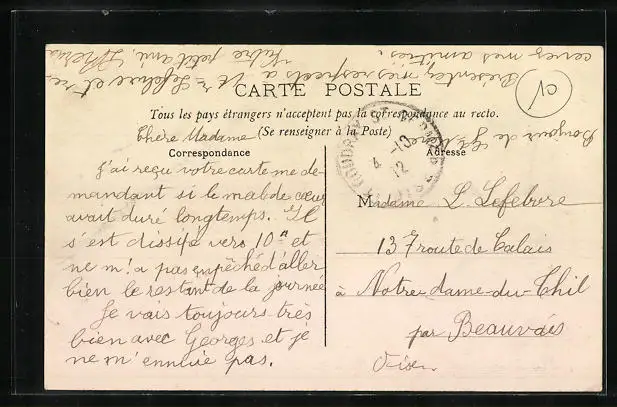 CARTE POSTALE
Tous les pays étrangers n'acceptent pas la correspondance au recto.
(Se renseigner à la Poste)
Correspondance
Adresse
Chère Madame
J'ai reçu votre carte me de-
mandant si le mal de cœur
avait duré longtemps. Il
s'est dissipé vers 10 et
ne m'a pas empêché d'aller
bien le restant de la journée
Je vais toujours très
bien avec Georges et je
ne m'ennuie pas.
Présentez mes respects à Mr Lefebvre et re-
cevez mes amitiés. Votre petit ami,
Bonjour de
Madame L. Lefebvre
137 route de Calais
à Notre-dame-du-Thil
par Beauvais
Oise
4 -10
12
CV